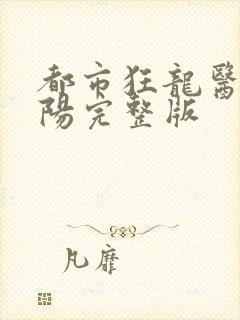 都市狂龍醫
陽完整版
凡靡